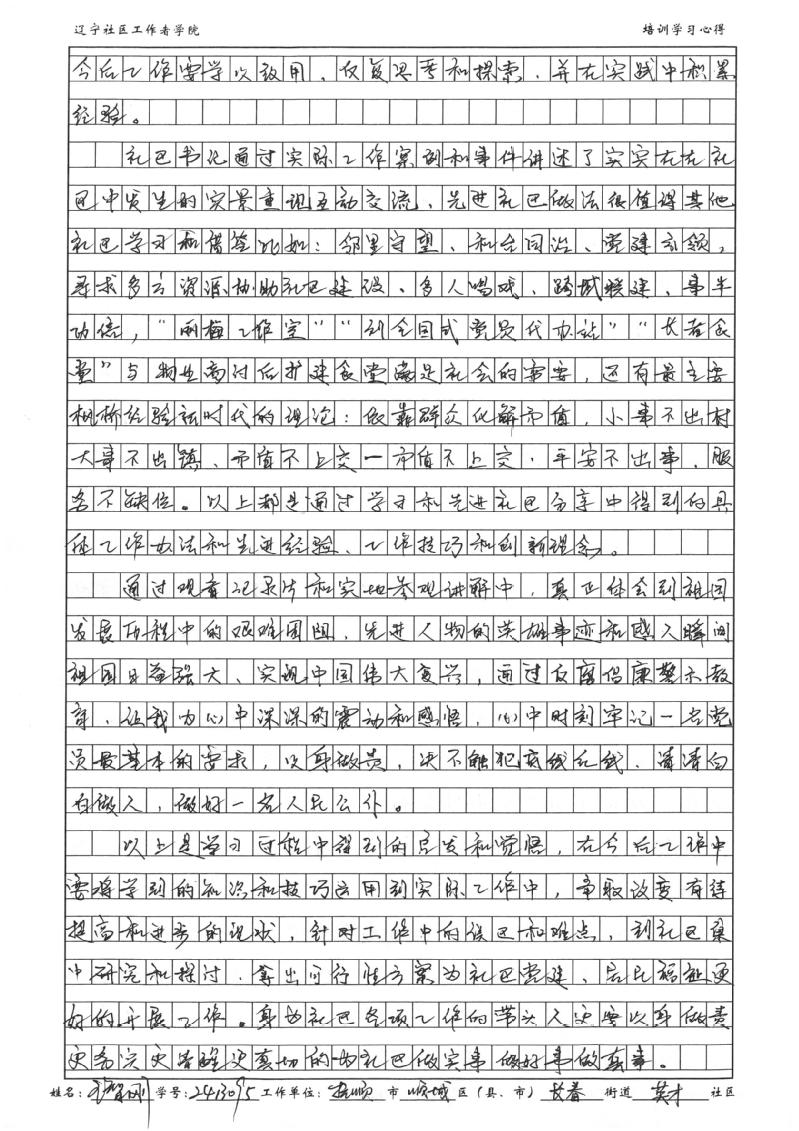 辽宁社区工作者学院 培训学习心得
今后工作要学以致用，反复思考和探索，并在实践中积累
经验。
社区书记通过实际工作案例和事件讲述了实实在在社
区中发生的实景重现互动交流，先进社区做法很值得其他
社区学习和借鉴比如：邻里守望、和合同治、党建引领，
寻求多方资源协助社区建设、多人唱戏、跨域联建、事半
功倍，“丽梅工作室”“ 全国式党员代办站”“长者食
堂”与物业商讨后扩建食堂满足社会的需要，还有最主要
枫桥经验新时代的理论：依靠群众化解矛盾，小事不出村
大事不出镇、矛盾不上交一矛盾不上交，平安不出事、服
务不缺位。以上都是通过学习和先进社区分享中得到的具
体工作办法和先进经验、工作技巧和创新理念。
通过观看记录片和实地参观讲解中，真正体会到祖国
发展历程中的艰难困阻，先进人物的英雄事迹和感人瞬间
祖国日益强大、实现中国伟大复兴，通过反腐倡廉警示教
育，让我内心中深深的震动和感悟，心中时刻牢记一名党
员最基本的要求，以身做责，决不触犯底线红线、清清白
白做人，做好一名人民公仆。
以上是学习过程中得到的启发和觉悟，在今后工作中
要将学到的知识和技巧运用到实际工作中，争取改变有待
提高和进步的现状，针对工作中的误区和难点，到社区集
中研究和探讨，拿出可行性方案为社区党建、居民福祉更
好的开展工作。身为社区各项工作的带头人更要以身做责
更务实更 更真切的为社区做实事做好事做真事。
姓名： 智刚 学号：2413095 工作单位：抚顺 市 顺城 区（县、市） 长春 街道 英才 社区